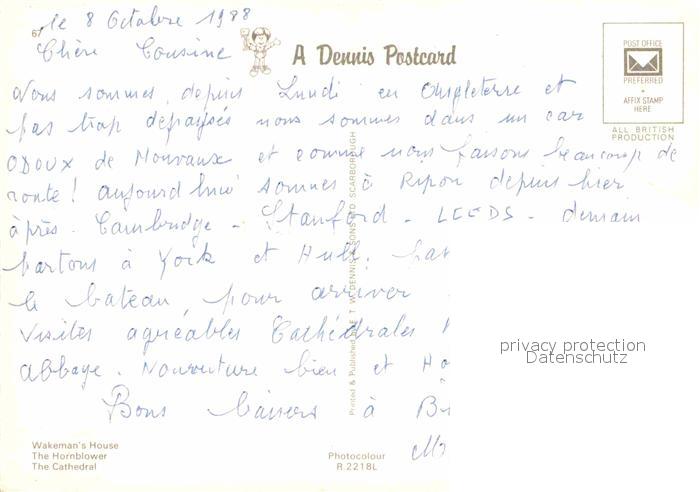 67
le 8 Octobre 1988
Chère Cousine
A Dennis Postcard
POST OFFICE
PREFERRED
AFFIX STAMP
HERE
ALL BRITISH
PRODUCTION
Nous sommes depuis Lundi en Angleterre et
pas trop dépaysés nous sommes dans un car
ODOUX de Mouvaux et comme nous faisons beaucoup de
route! aujourd'hui sommes à Ripon depuis hier
après - Cambridge - Stanford - LEEDS - demain
partons à York et Hull.
le bateau, pour arriver
Visites agréables Cathédrales
abbaye. Nourriture bien et
Bons baisers à
Printed & Published by E. T. W. DENNIS & SONS LTD. SCARBOROUGH
privacy protection
Datenschutz
Wakeman's House
The Hornblower
The Cathedral
Photocolour
R.2218L